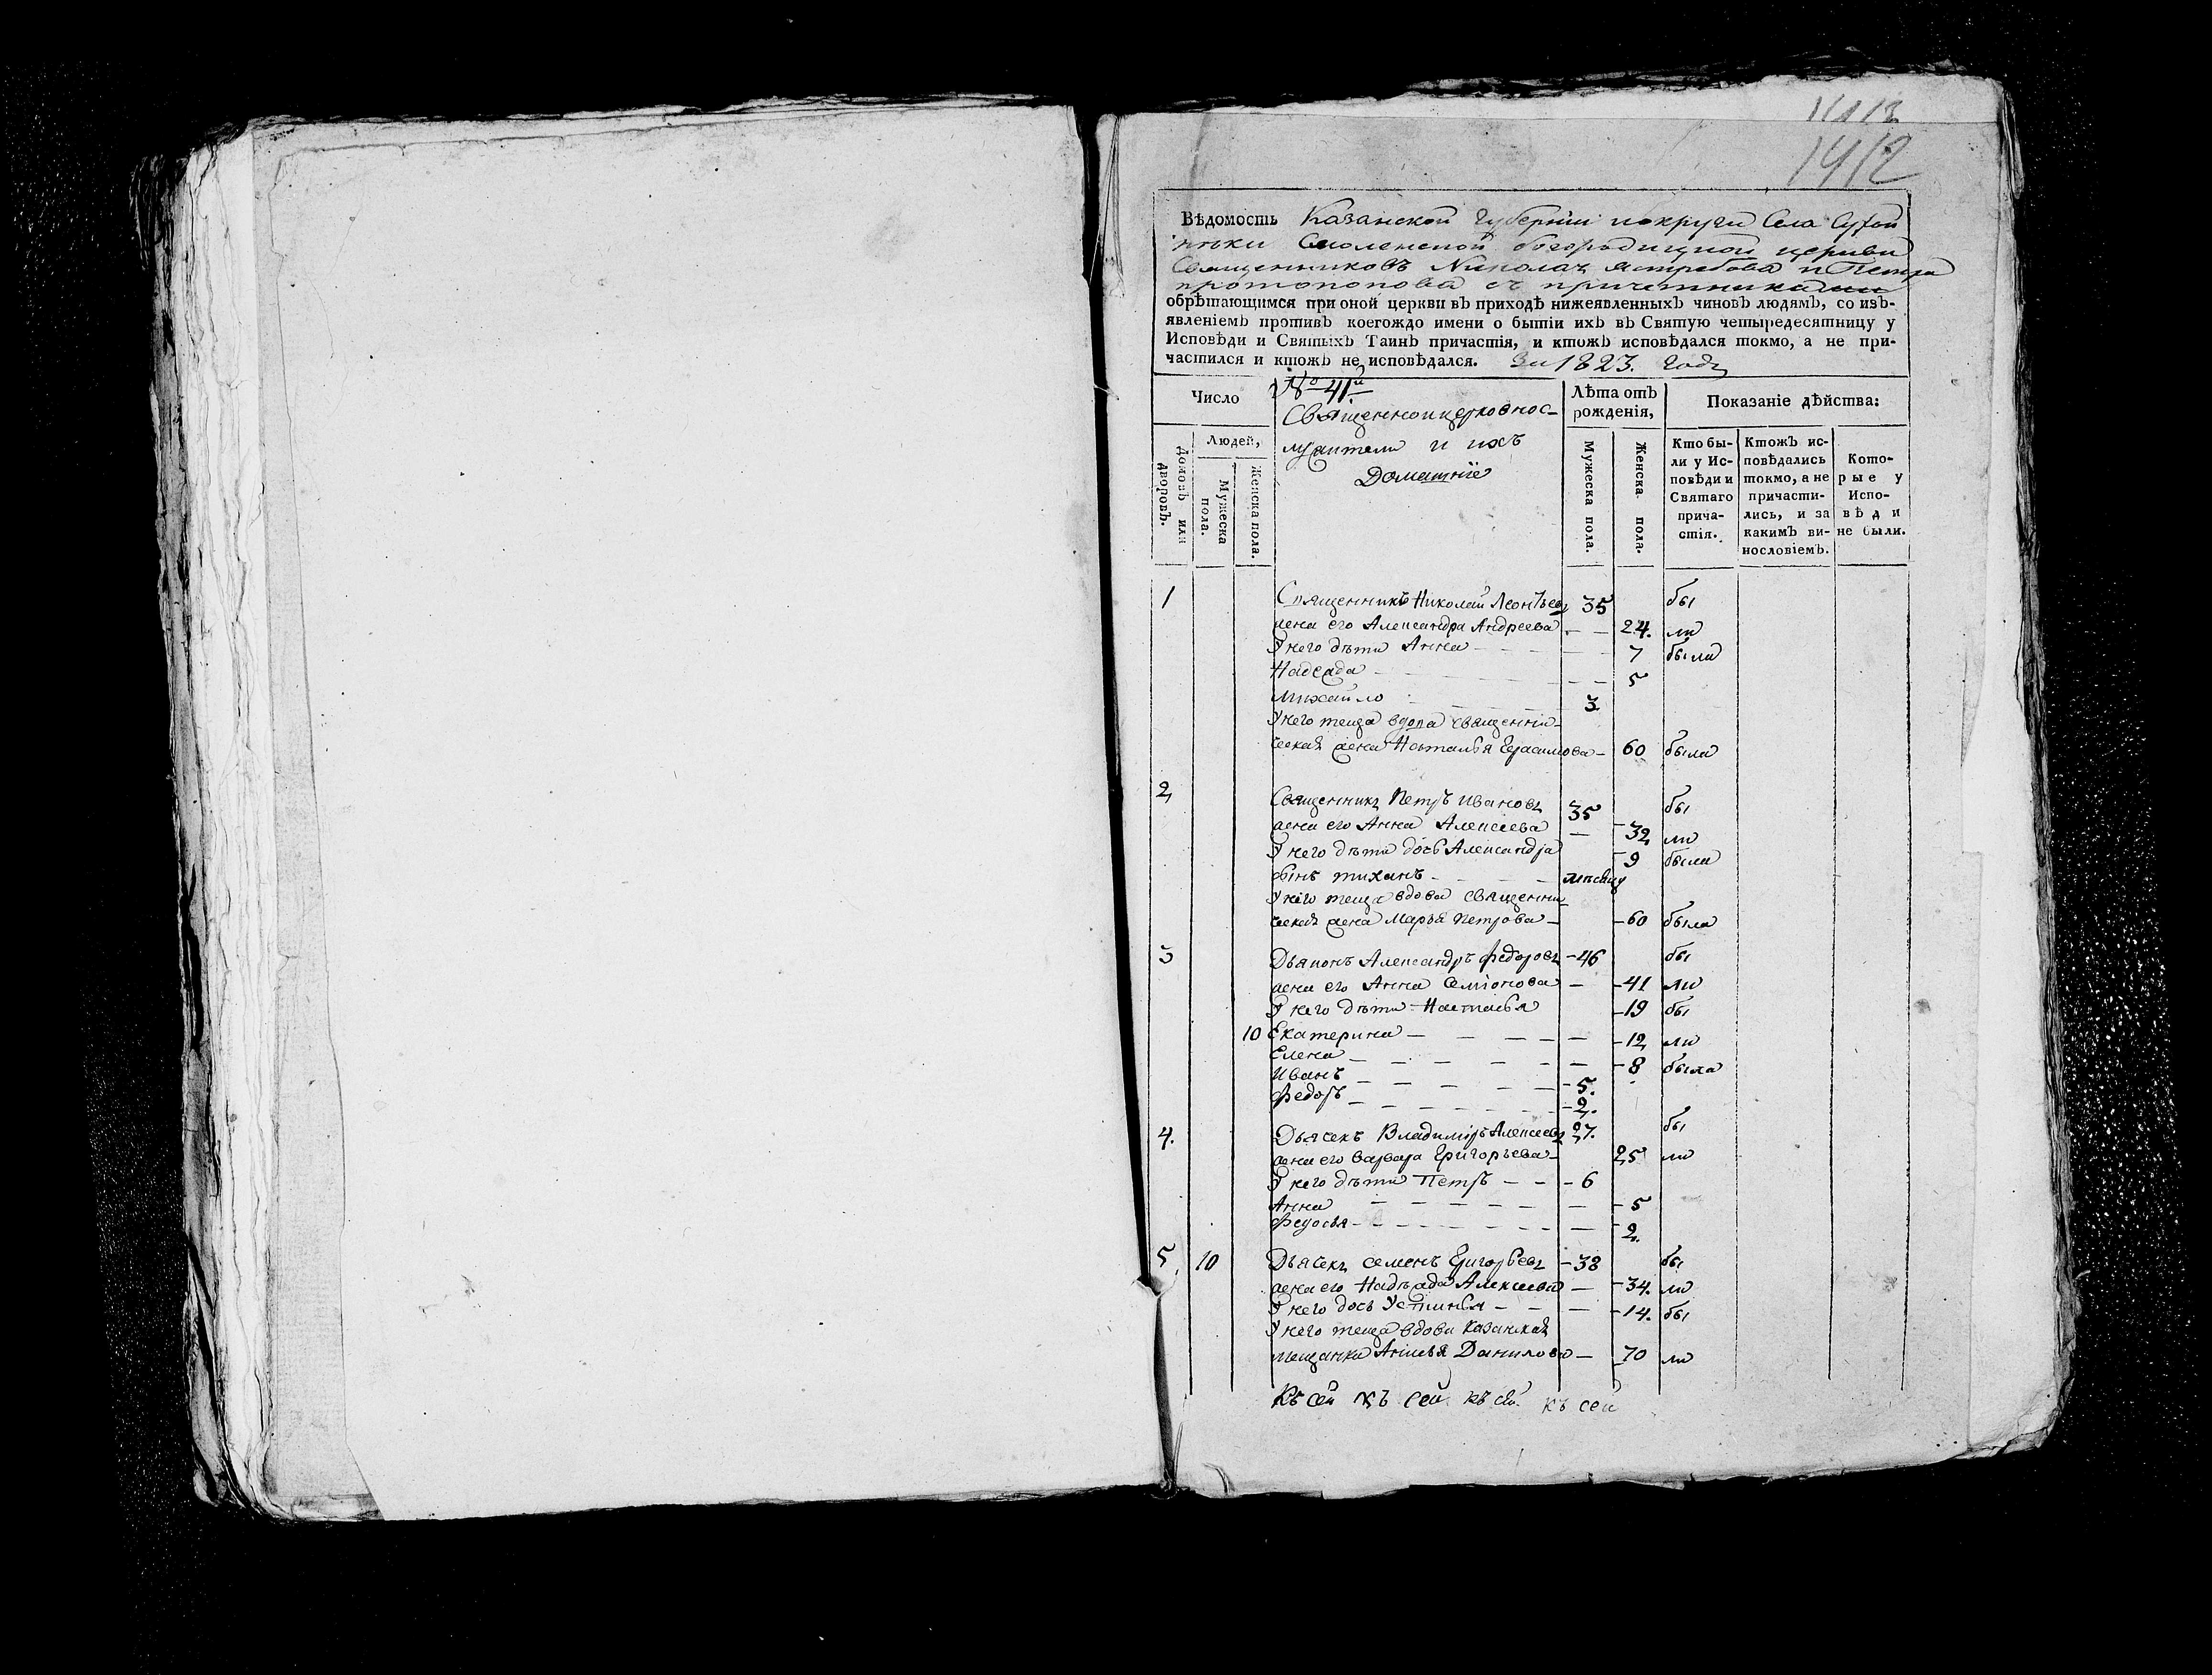 1412
Вѣдомость Казанской Губернїи и округи Села Сухой
рѣки Смоленской богородицкой церкви
Священниковъ Николая Ястребова и Петра
протопопова съ причетниками
обрѣтающимся при оной церкви въ приходѣ нижеявленныхъ чиновъ людямъ, со изъ-
явленіемъ противъ коегождо имени о бытіи ихъ въ Святую четыредесятницу у
Исповѣди и Святыхъ Таинъ причастія, и ктожъ исповѣдался токмо, а не при-
частился и ктожъ не исповѣдался. За 1823. годъ
Число
№ 41й
Священно и церковнос-
лужители и ихъ
Домашнїе
Лѣта отъ
рожденія,
Показаніе дѣйства:
Домовъ или
дворовъ.
Людей,
Мужеска
пола.
Женска пола.
Мужеска пола.
Женска пола.
Кто бы-
ли у Ис-
повѣди и
Святаго
прича-
стія.
Ктожъ ис-
повѣдались
токмо, а не
причасти-
лись, и за
какимъ ви-
нословіемъ.
Кото-
рые у
Испо-
вѣди
не были.
1 Священникъ Николай Леонтьевъ 35 бы
жена его Александра Андреева — — 24. ли
У него дѣти Анна — — — — — 7 была
Надежда — — — — — — 5
Михайло — — — 3
У него теща вдова священни-
ческая жена Наталья Герасимова — 60 была
2 Священникъ Петръ Ивановъ 35 бы
жена его Анна Алексеева — 32 ли
У него дѣти дочь Александра 9 была
сынъ тихонъ — — — — мѣсяцу
У него теща вдова священни
ческая жена Марья Петрова — 60 была
3 Дьяконъ Александръ Федоровъ — 46 бы
жена его Анна Семїонова — — 41 ли
У него дѣти — Настасья — 19 бы
10 Екатерина — — — — — — 12 ли
Елена — — — — — — — 8 была
Иванъ — — — — — 5.
Федоръ — — — — — — 2.
4. Дьячекъ Владимїръ Алексеевъ 27. бы
жена его Варвара Григорьева — 25 ли
У него дѣти Петръ — — — 6
Анна — — — — — — 5
Федосья — — — — — — — — 2.
5 10 Дьячекъ семенъ Григорьевъ — 38 бы
жена его Надѣжда Алексеева — — 34. ли
У него дочь Устинья — — — — 14. бы
У него теща вдова казанская
мещанка Данилова — 70 ли
Къ сей къ сей къ сей къ сей